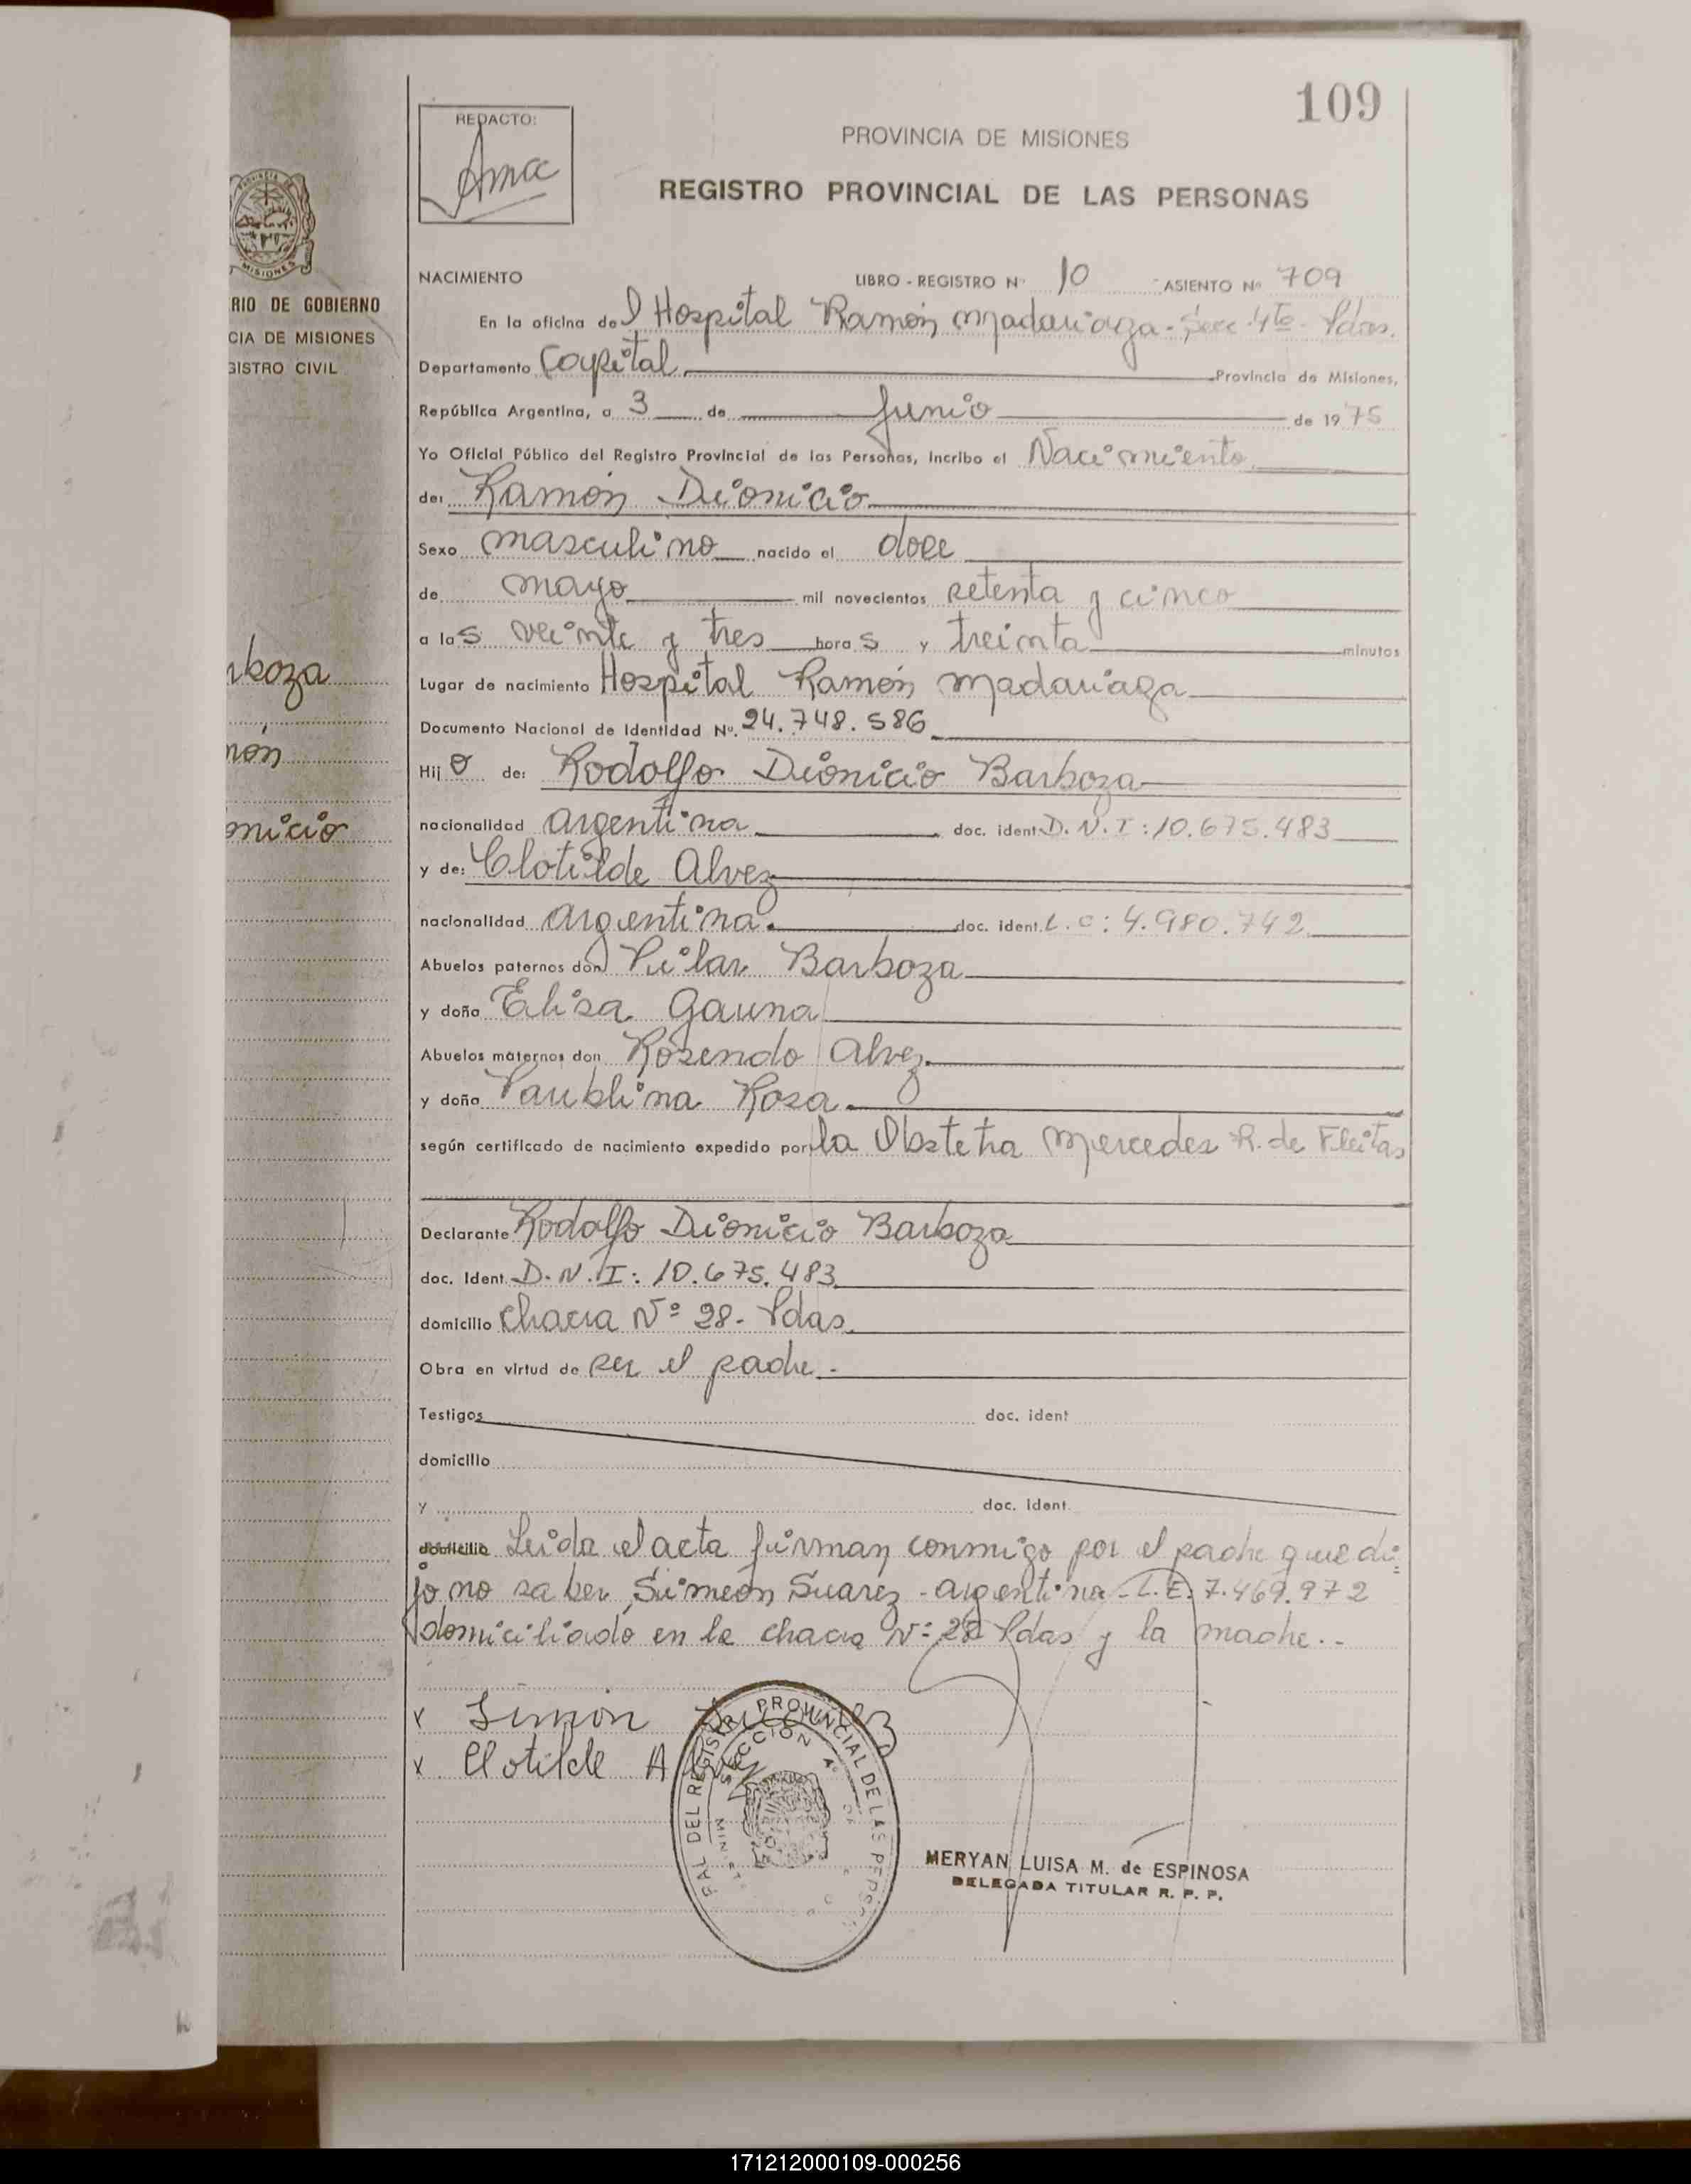 109
REDACTO:
PROVINCIA DE MISIONES
REGISTRO PROVINCIAL DE LAS PERSONAS
MISIONES
RIO DE GOBIERNO
CIA DE MISIONES
GISTRO CIVIL
rboza
món
onicio
NACIMIENTO LIBRO - REGISTRO Nº 10 ASIENTO Nº 709
En la oficina del Hospital Ramón Madariaga - Secc. 4ta - Pdas.
Departamento Capital Provincia de Misiones,
República Argentina, a 3 de Junio de 1975
Yo Oficial Público del Registro Provincial de las Personas, incribo el Nacimiento
de: Ramón Dionicio
Sexo masculino nacido el doce
de mayo mil novecientos setenta y cinco
a las veinte y tres horas y treinta minutos
Lugar de nacimiento Hospital Ramón Madariaga
Documento Nacional de Identidad Nº. 24.748.586
Hijo de: Rodolfo Dionicio Barboza
nacionalidad argentina doc. ident. D.N.I: 10.675.483
y de: Clotilde Alvez
nacionalidad argentina. doc. ident. L.C: 4.980.742
Abuelos paternos don Pilar Barboza
y doña Elisa Gauna
Abuelos maternos don Rosendo Alvez
y doña Paublina Rosa
según certificado de nacimiento expedido por la Obstetra Mercedes R. de Fleitas
Declarante Rodolfo Dionicio Barboza
doc. Ident. D.N.I: 10.675.483
domicilio chacra Nº 28 - Pdas.
Obra en virtud de ser el padre.
Testigos doc. ident
domicilio
y doc. ident.
domicilio Leida el acta firman conmigo por el padre que di=
jo no saber, Simeón Suarez - argentina - L.E. 7.469.972
domiciliado en la chacra Nº 28 Pdas y la madre.-
x Simion
x Clotilde
PROVINCIAL DE LAS
DEL
SECCION
MERYAN LUISA M. de ESPINOSA
DELEGADA TITULAR R. P. P.
171212000109-000256